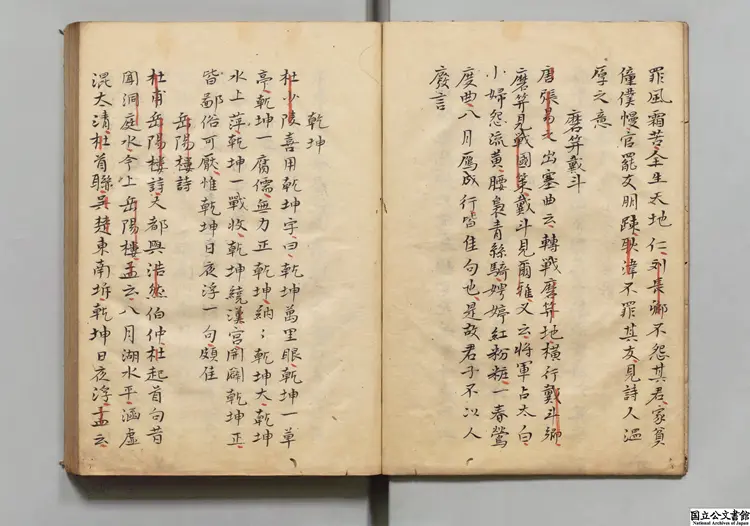 罪風霜苦全生天地仁劉長卿不怨其君家貧
僮僕慢官罷友朋踈耿湋不罪其友見詩人温
厚之意
磨笄戴斗
唐張易之出塞曲云轉戰磨笄地橫行戴斗鄉
磨笄見戰國策戴斗見爾雅又云將軍占太白
小婦怨流黃騕褭青絲騎娉婷紅粉粧一春鶯
度曲八月鴈成行皆佳句也是故君子不以人
廢言
乾坤
杜少陵喜用乾坤字曰乾坤萬里眼乾坤一草
亭乾坤一腐儒無力正乾坤納納乾坤大乾坤
水上萍乾坤一戰收乾坤繞漢宮開闢乾坤正
皆鄙俗可厭惟乾坤日夜浮一句頗佳
岳陽樓詩
杜甫岳陽樓詩天都與浩然伯仲杜起首句昔
聞洞庭水今上岳陽樓孟云八月湖水平涵虛
混太清杜首聯吳楚東南坼乾坤日夜浮孟云
国立公文書館
National Archives of Japan